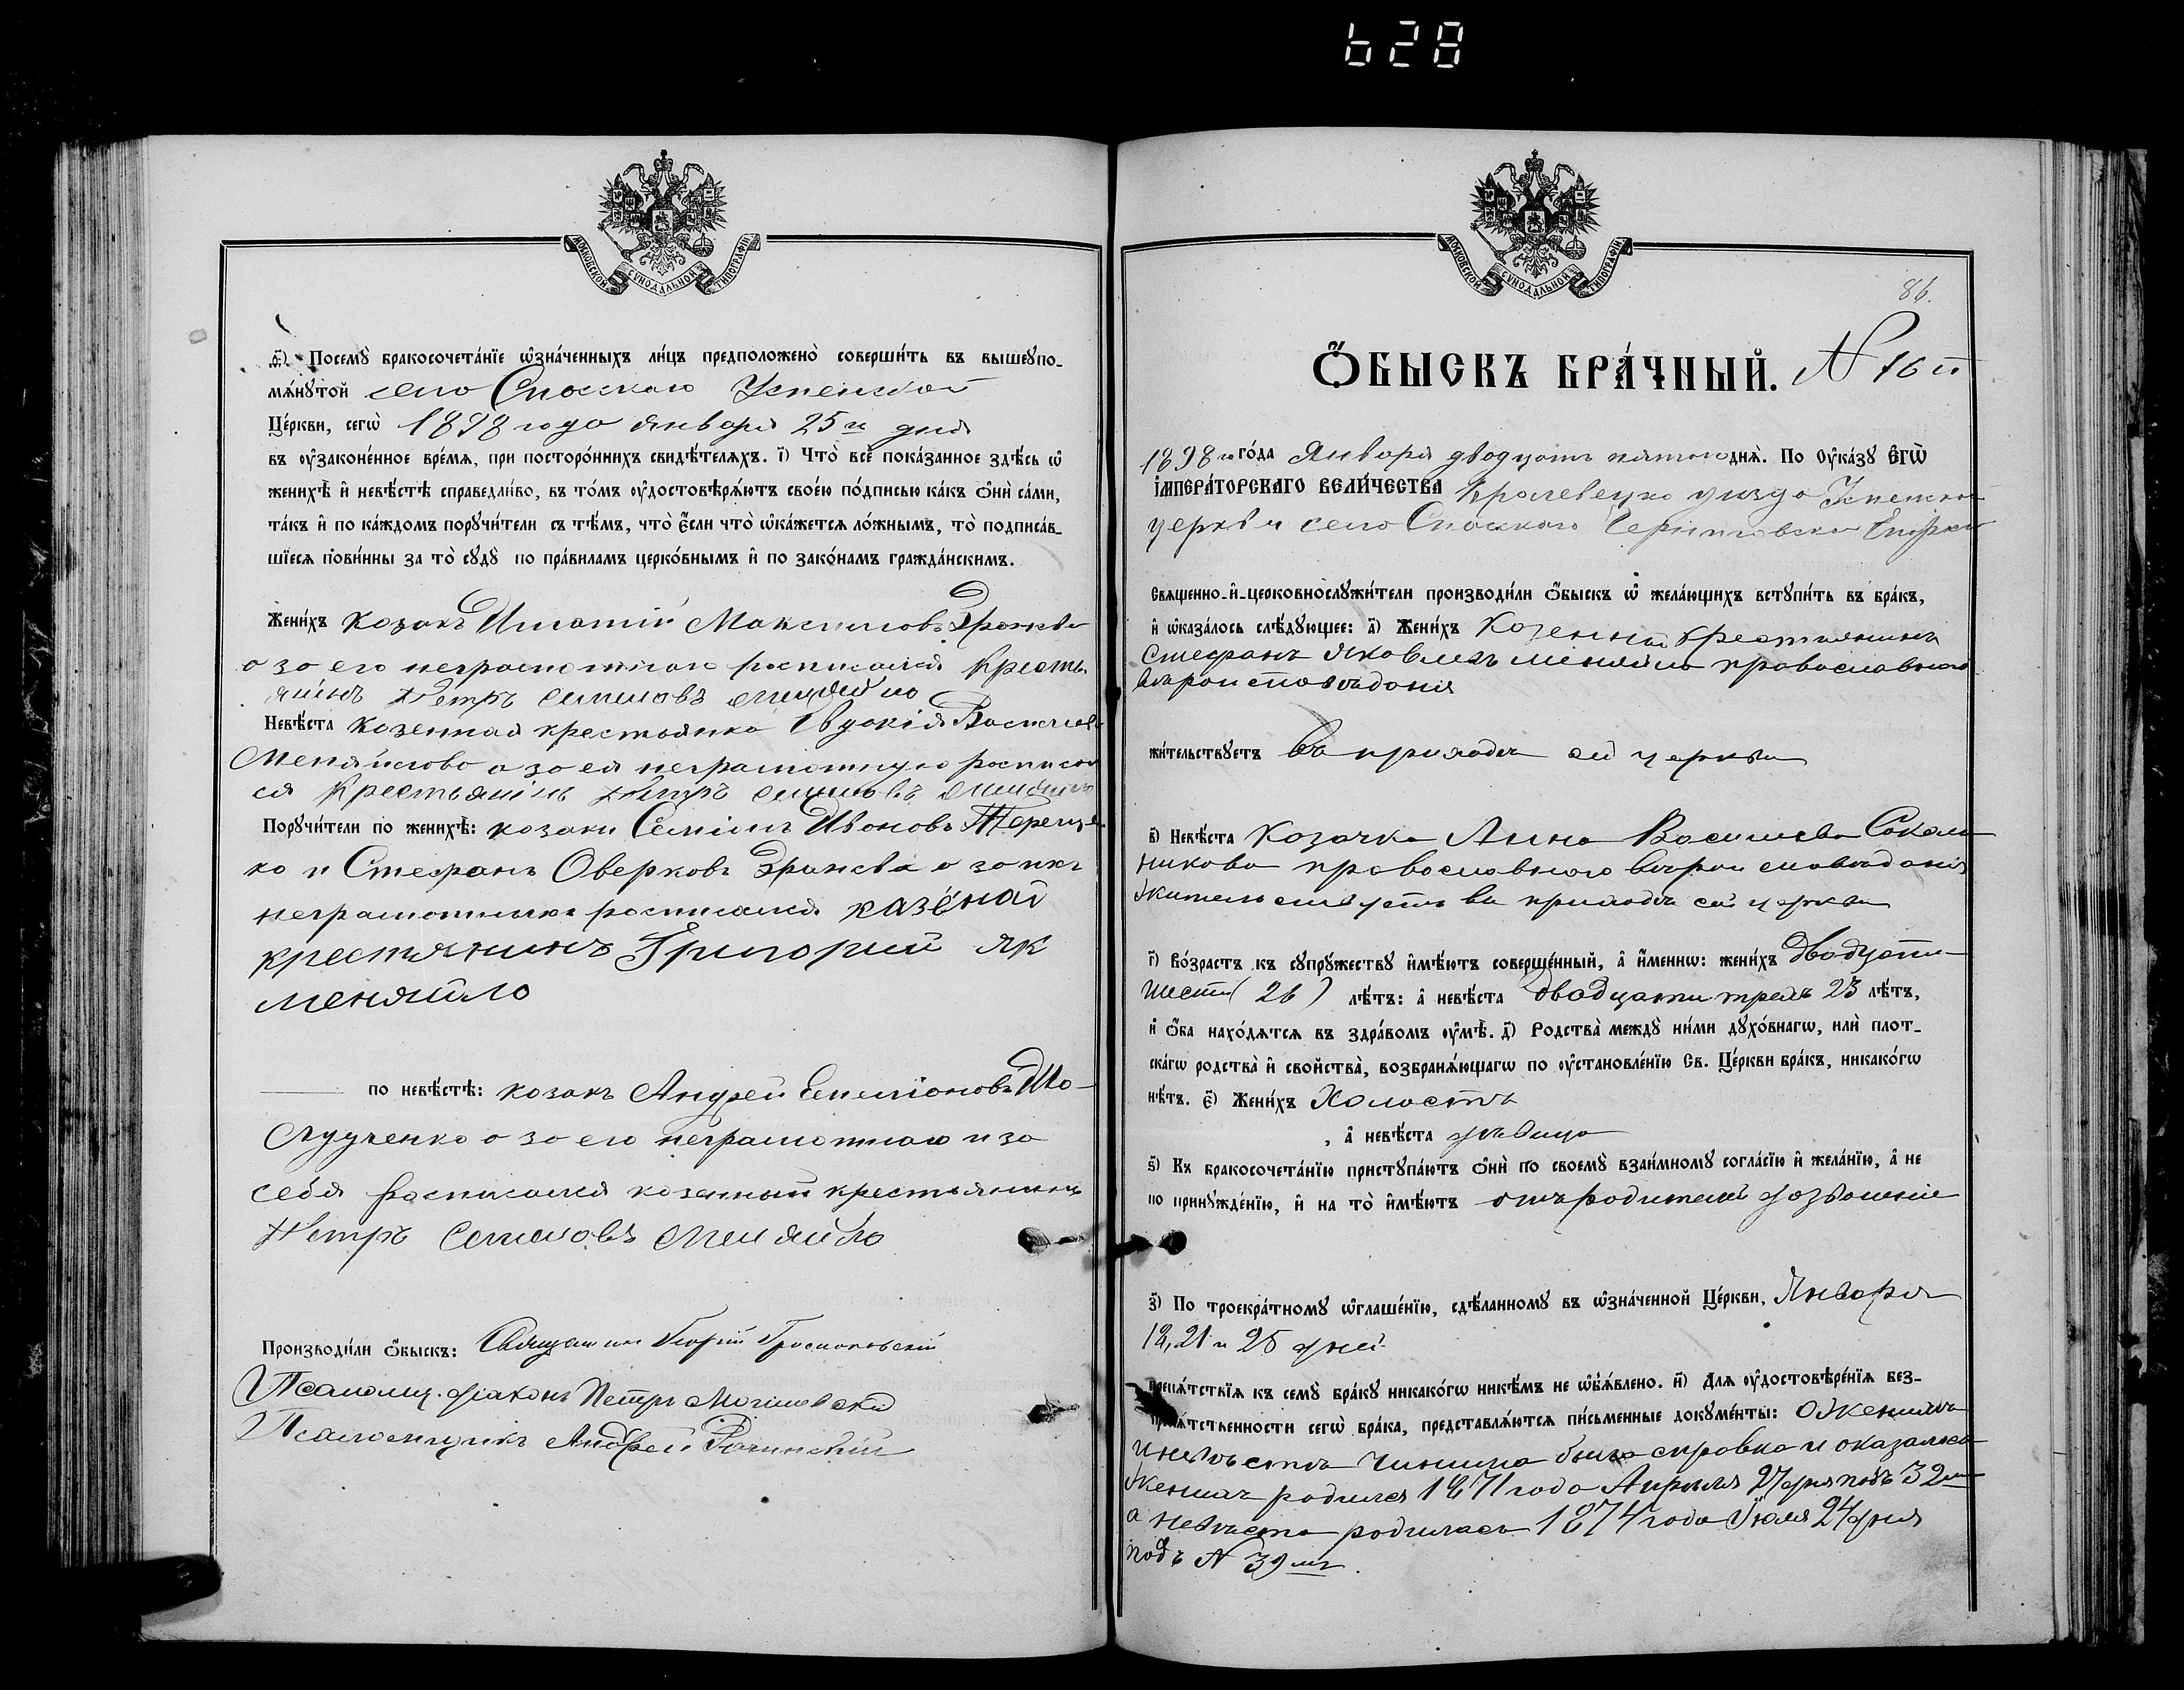 628
МОСКОВСКОЙ СѴНОДАЛЬНОЙ ТИПОГРАФІИ
ѳ҃) Посемꙋ̀ бракосочета́нїе ѡ҆зна́ченныхъ ли́цъ предположено̀ соверши́ть въ вышеꙋпо-
мѧ́нꙋтой село Спаскаго Успенской
Це́ркви, сегѡ̀ 1898 года Января 25го дня
въ ᲂу҆законе́нное вре́мѧ, при посторо́ннихъ свидѣ́телѧхъ. і҃) Что̀ всѐ пока́занное здѣ́сь ѡ҆
женихѣ̀ и҆ невѣ́стѣ справедли́во, въ то́мъ ᲂу҆достовѣрѧ́ютъ свое́ю по́дписью ка́къ ѻ҆нѝ са́ми,
та́къ и҆ по ка́ждомъ порꙋчи́тели съ тѣ́мъ, что̀ є҆́сли что̀ ѡ҆ка́жетсѧ ло́жнымъ, то̀ подписа́в-
шїесѧ пови́нны за то̀ сꙋдꙋ̀ по пра́виламъ церко́внымъ и҆ по зако́намъ гражда́нскимъ.
Жени́хъ козакъ Игнатій Максимовъ
а за его неграмотнаго росписался Кресть
янинъ Петръ Семеновъ Меняйло
Невѣ́ста козенная крестьянка Евдокія Василиев
Меняйлова а за ея неграмотную росписал
ся Крестьянинъ Петръ Семеновъ Меняйло
Порꙋчи́тели по женихѣ̀: козаки Семенъ Ивановъ Терещен
ко и Стефанъ Оверковъ а за ихъ
неграмотныхъ росписался казёнай
крестянинъ Григорий Як
меняйло
по невѣ́стѣ: козакъ Андрей Семионовъ Шо-
лудченко а за его неграмотнаго и за
себя росписался козенный крестьянинъ
Петръ Семеновъ Меняйло
Производи́ли ѻ҆́быскъ: Священникъ Георгій
Псаломщ. діаконъ Петръ Могилевскій
Псаломщикъ Андрей Рачинскій
МОСКОВСКОЙ СѴНОДАЛЬНОЙ ТИПОГРАФІИ
86.
Ѻ҆́БЫСКЪ БРА́ЧНЫЙ. N 16й
1898го го́да Января двадцать пятого днѧ̀. По Оу҆ка́зꙋ Є҆гѡ̀
І҆мпера́торскаго вели́чества Кролевецко уезда Успенской
церкви село Спаского Черниговской Епархіи
Свѧщенно-и҆-церковнослꙋжи́тели производи́ли ѻ҆́быскъ ѡ҆ жела́ющихъ встꙋпи́ть въ бра́къ,
и҆ ѡ҆каза́лось слѣ́дꙋющее: а҃) Жени́хъ Козенный крестянинъ
Стефанъ Яковлевъ Меняйло православнаго
вѣроисповѣданія
жи́тельствꙋетъ въ приходѣ сей церкви
в҃) Невѣ́ста Козачка Анна Василиева Соколь
никова православнаго вѣроисповѣданія
жительствуетъ въ приходѣ сей церкви
г҃) Во́зрастъ къ сꙋпрꙋ́жествꙋ и҆мѣ́ютъ совершенный, а҆ и҆́меннѡ: жени́хъ двадцати
шести (26) лѣ́тъ: а҆ невѣ́ста двадцати трехъ 23 лѣ́тъ,
и҆ ѻ҆́ба нахо́дѧтсѧ въ здра́вомъ ᲂу҆мѣ̀. д҃) Родства̀ междꙋ̀ ни́ми дꙋхо́внагѡ, илѝ плот-
ска́гѡ родства̀ и҆ сво́йства, возбранѧ́ющагѡ по ᲂу҆становле́нїю Св. Це́ркви бра́къ, никако́гѡ
нѣ́тъ. є҃) Жени́хъ Холостъ
, а҆ невѣ́ста дѣвица
ѕ҃) Къ бракосочета́нїю пристꙋпа́ютъ ѻ҆нѝ по своемꙋ̀ взаи́мномꙋ согла́сїю и҆ жела́нїю, а҆ не
по принꙋжде́нїю, и҆ на то̀ и҆мѣ́ютъ отъ родителей дозволеніе
з҃) По троекра́тномꙋ ѡ҆глаше́нїю, сдѣ́ланномꙋ въ ѡ҆зна́ченной Це́ркви, Января
18, 21 и 25 дней
препѧ́тствїѧ къ семꙋ̀ бра́кꙋ никако́гѡ никѣ́мъ не ѡ҆бъѧ́влено. и҃) Длѧ ᲂу҆достовѣре́нїѧ без-
препѧ́тственности сегѡ̀ бра́ка, представлѧ́ютсѧ пи́сьменные докꙋме́нты: О женихѣ
и невѣстѣ чинима была справка и оказалось
Женихъ родился 1871 года Апреля 27 дня подъ 32мъ
а невѣста родилась 1874 года Іюля 24 дня
подъ N 39мъ.